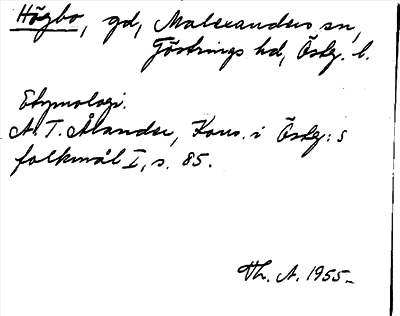 Högbo, gd, Malexanders sn,
Göstrings hd, Östg. l.
Etymologi.
A. T. Ålander, Kons. i Östg:s
folkmål I, s. 85.
Th. A. 1955